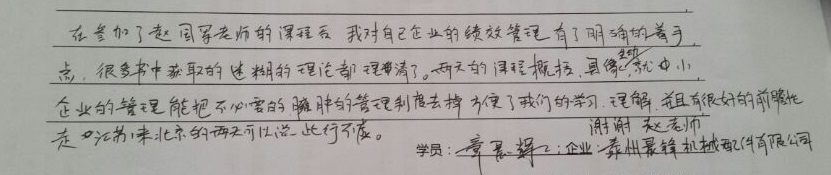 在参加了赵国军老师的课程后 我对自己企业的绩效管理有了明确的着手
点,很多书中获取的迷糊的理论都理清了。两天的课程概括,具像,生动 就中小
企业的管理能把不必要的臃肿的管理制度去掉 方便了我们的学习.理解,并且有很好的前瞻性
走 江苏来北京的两天可以说 此行不虚。
谢谢 赵老师
学员: 章 辉 企业: 苏州 锋机械配件有限公司